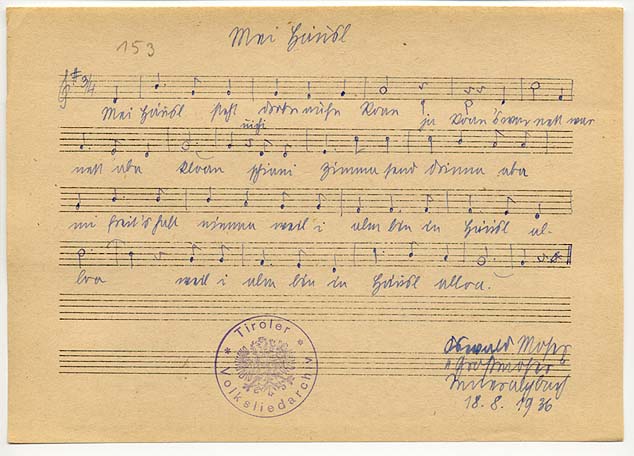 153
Mei Häusl
3/4
Mei Häusl steht drobn auf'n Roan ja Roan s'war nett war
nett aba kloan schiani Zimma send drinna aba
mi freit's halt nimma weil i alm bin in Häusl al-
loa weil i alm bin in Häusl alloa.
Tiroler Volksliedarchiv
Oswald Moser
"Großmoser"
18.8.1936